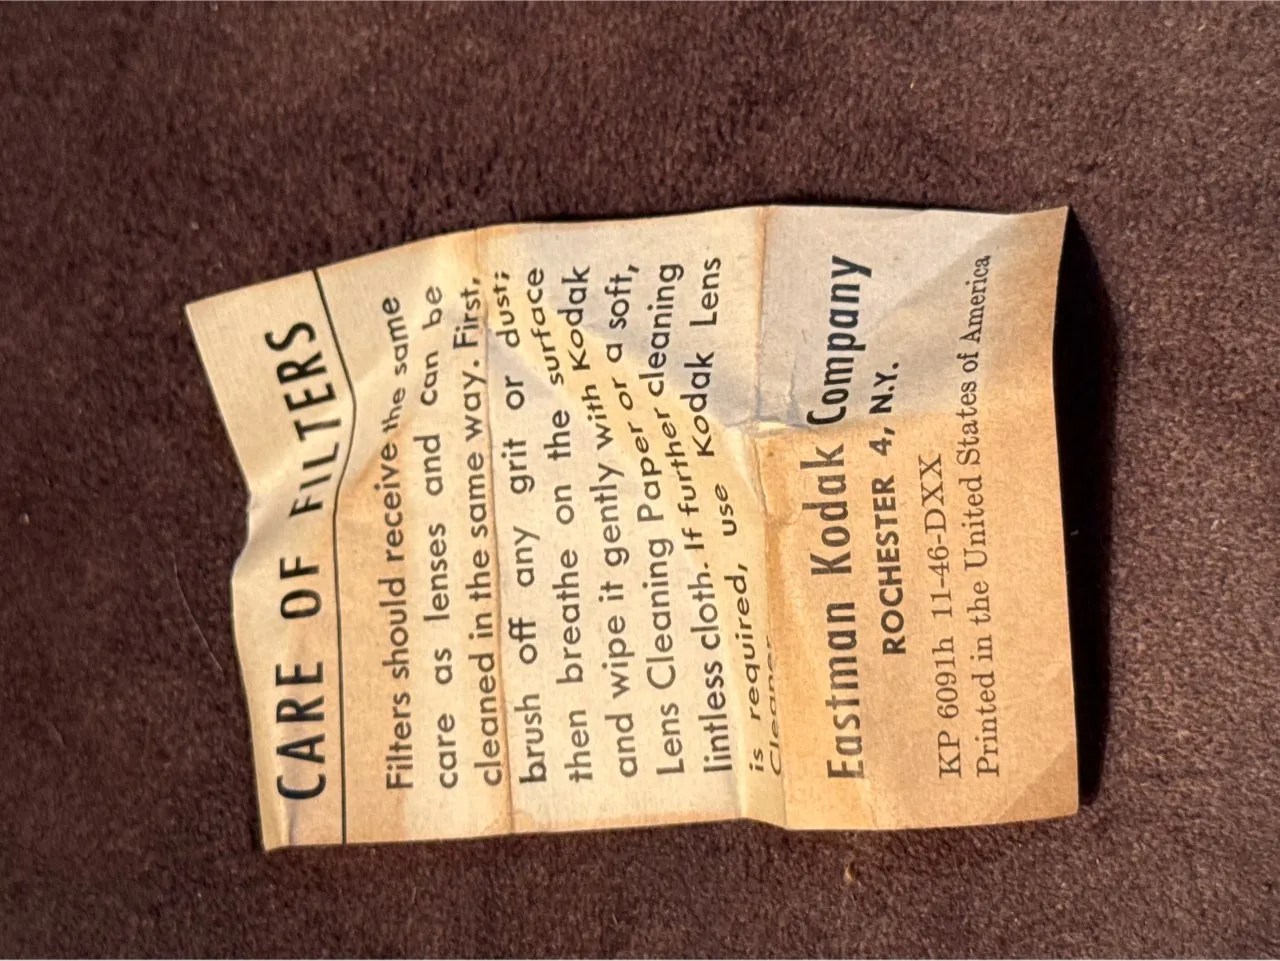 CARE OF FILTERS
Filters should receive the same
care as lenses and can be
cleaned in the same way. First,
brush off any grit or dust;
then breathe on the surface
and wipe it gently with Kodak
Lens Cleaning Paper or a soft,
lintless cloth. If further cleaning
is required, use Kodak Lens
Cleaner.
Eastman Kodak Company
ROCHESTER 4, N.Y.
KP 6091h 11-46-DXX
Printed in the United States of America